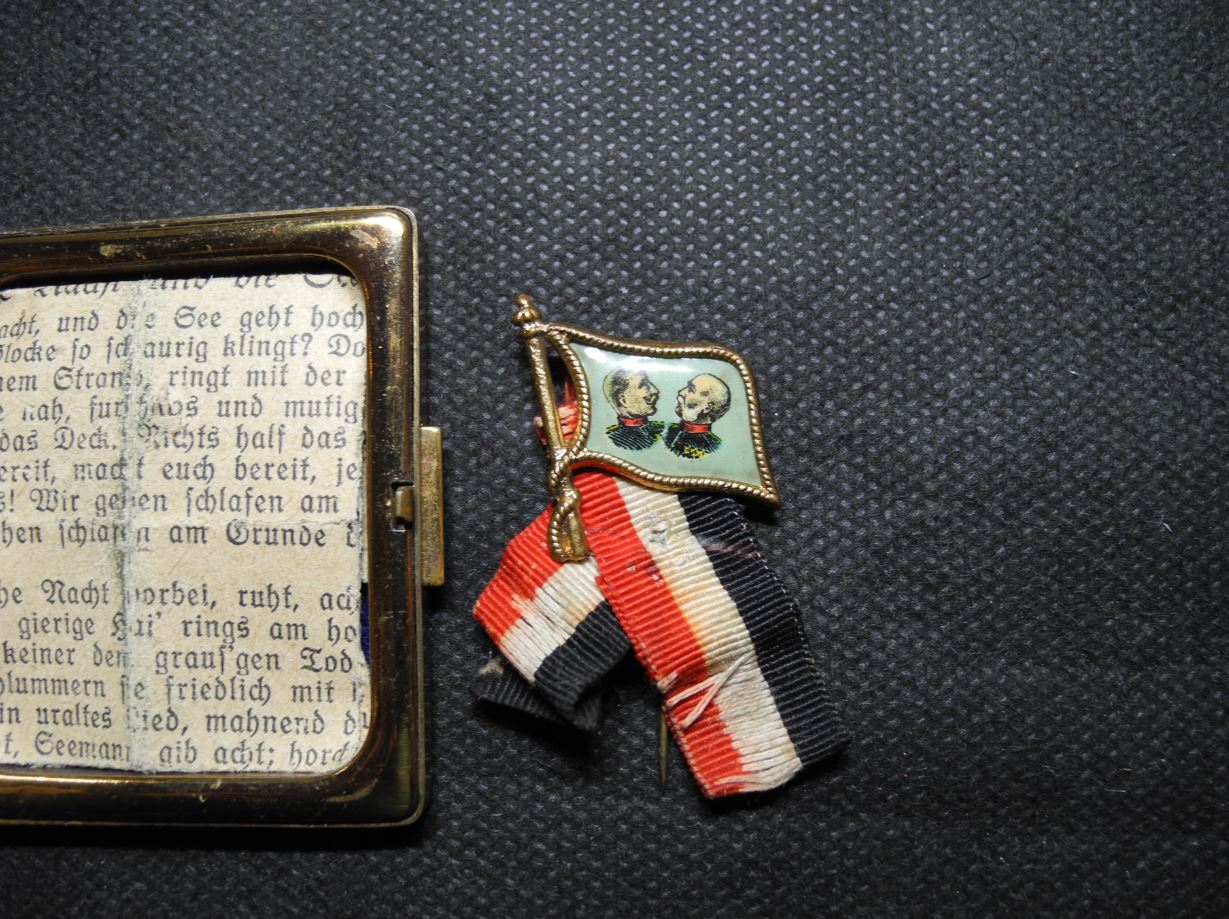 Nacht und die
acht, und die See geht hoch
Glocke so schaurig klingt? Do
nem Strand, ringt mit der
e nah, furchtlos und mutig
das Deck. Nichts half das
ereit, macht euch bereit, je
s! Wir gehen schlafen am
hen schlafen am Grunde d
he Nacht vorbei, ruht, ach
gierige Hai' rings am ho
keiner dem graus'gen Tod
lummern sie friedlich mit
in uraltes Lied, mahnend d
t, Seemann gib acht; horch